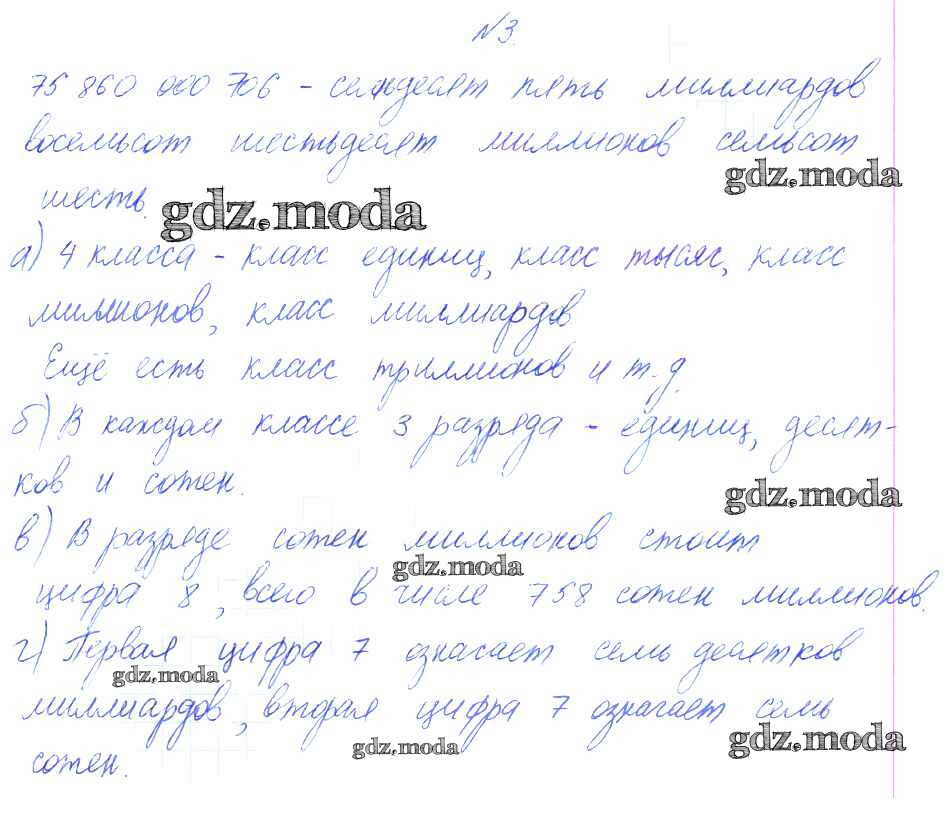 №3.
75 860 000 706 - семьдесят пять миллиардов
восемьсот шестьдесят миллионов семьсот
gdz.moda
шесть.
gdz.moda
а) 4 класса - класс единиц, класс тысяч, класс
миллионов, класс миллиардов
Ещё есть класс триллионов и т.д.
б) В каждом классе 3 разряда - единиц, десят-
ков и сотен.
gdz.moda
в) В разряде сотен миллионов стоит
gdz.moda
цифра 8, всего в числе 758 сотен миллионов.
г) Первая цифра 7 означает семь десятков
gdz.moda
миллиардов, вторая цифра 7 означает семь
gdz.moda
gdz.moda
сотен.